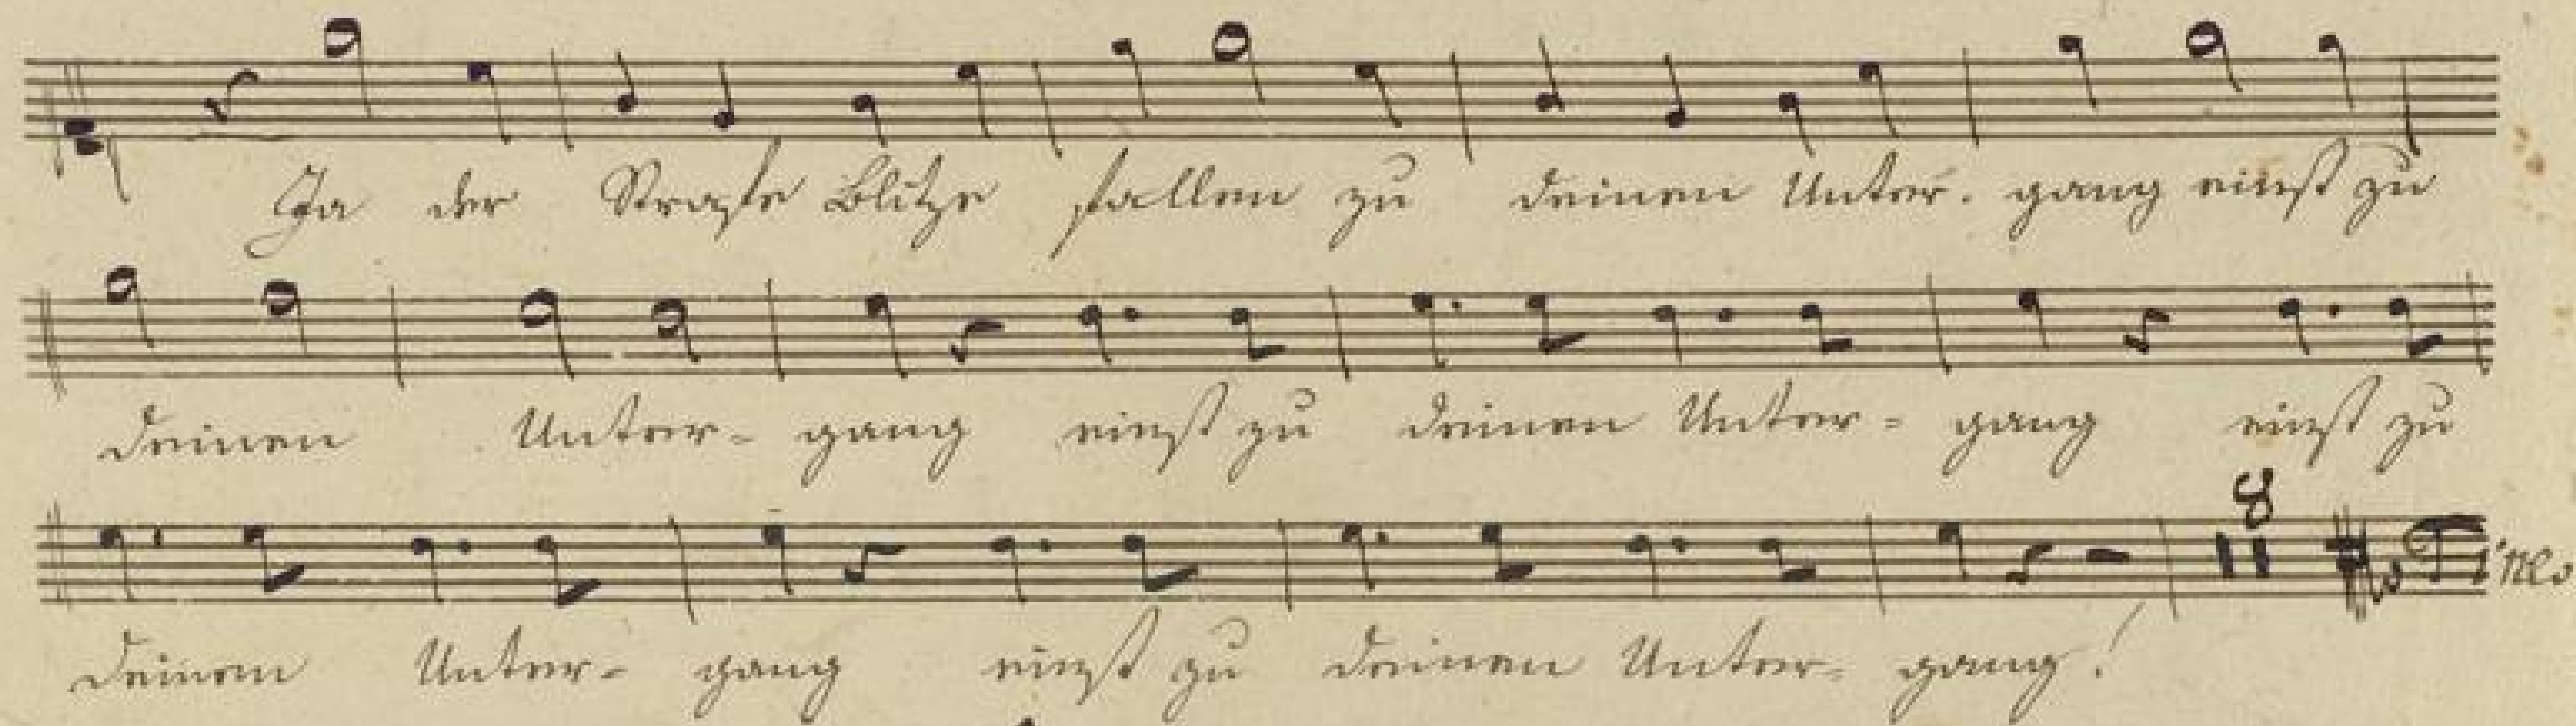 Ja der Strafe Blitze fallen zu deinen Unter- gang einst zu
deinen Unter- gang einst zu deinen Unter- gang einst zu
8
Fine
deinem Unter- gang einst zu deinen Unter- gang!